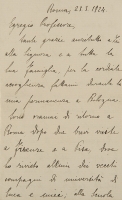 Roma, 22.2.1924.
Egregio Professore,
tante grazie anzitutto a
alla Signora e a tutta la
Sua famiglia, per la cordiale
accoglienza fattami durante la
mia permanenza a Bologna.
Sono ormai di ritorno a
Roma dopo due brevi soste
a Firenze e a Pisa dove
ho rivisto alcuni dei vecchi
compagni di università di
Pisa e amici, alla Scuola